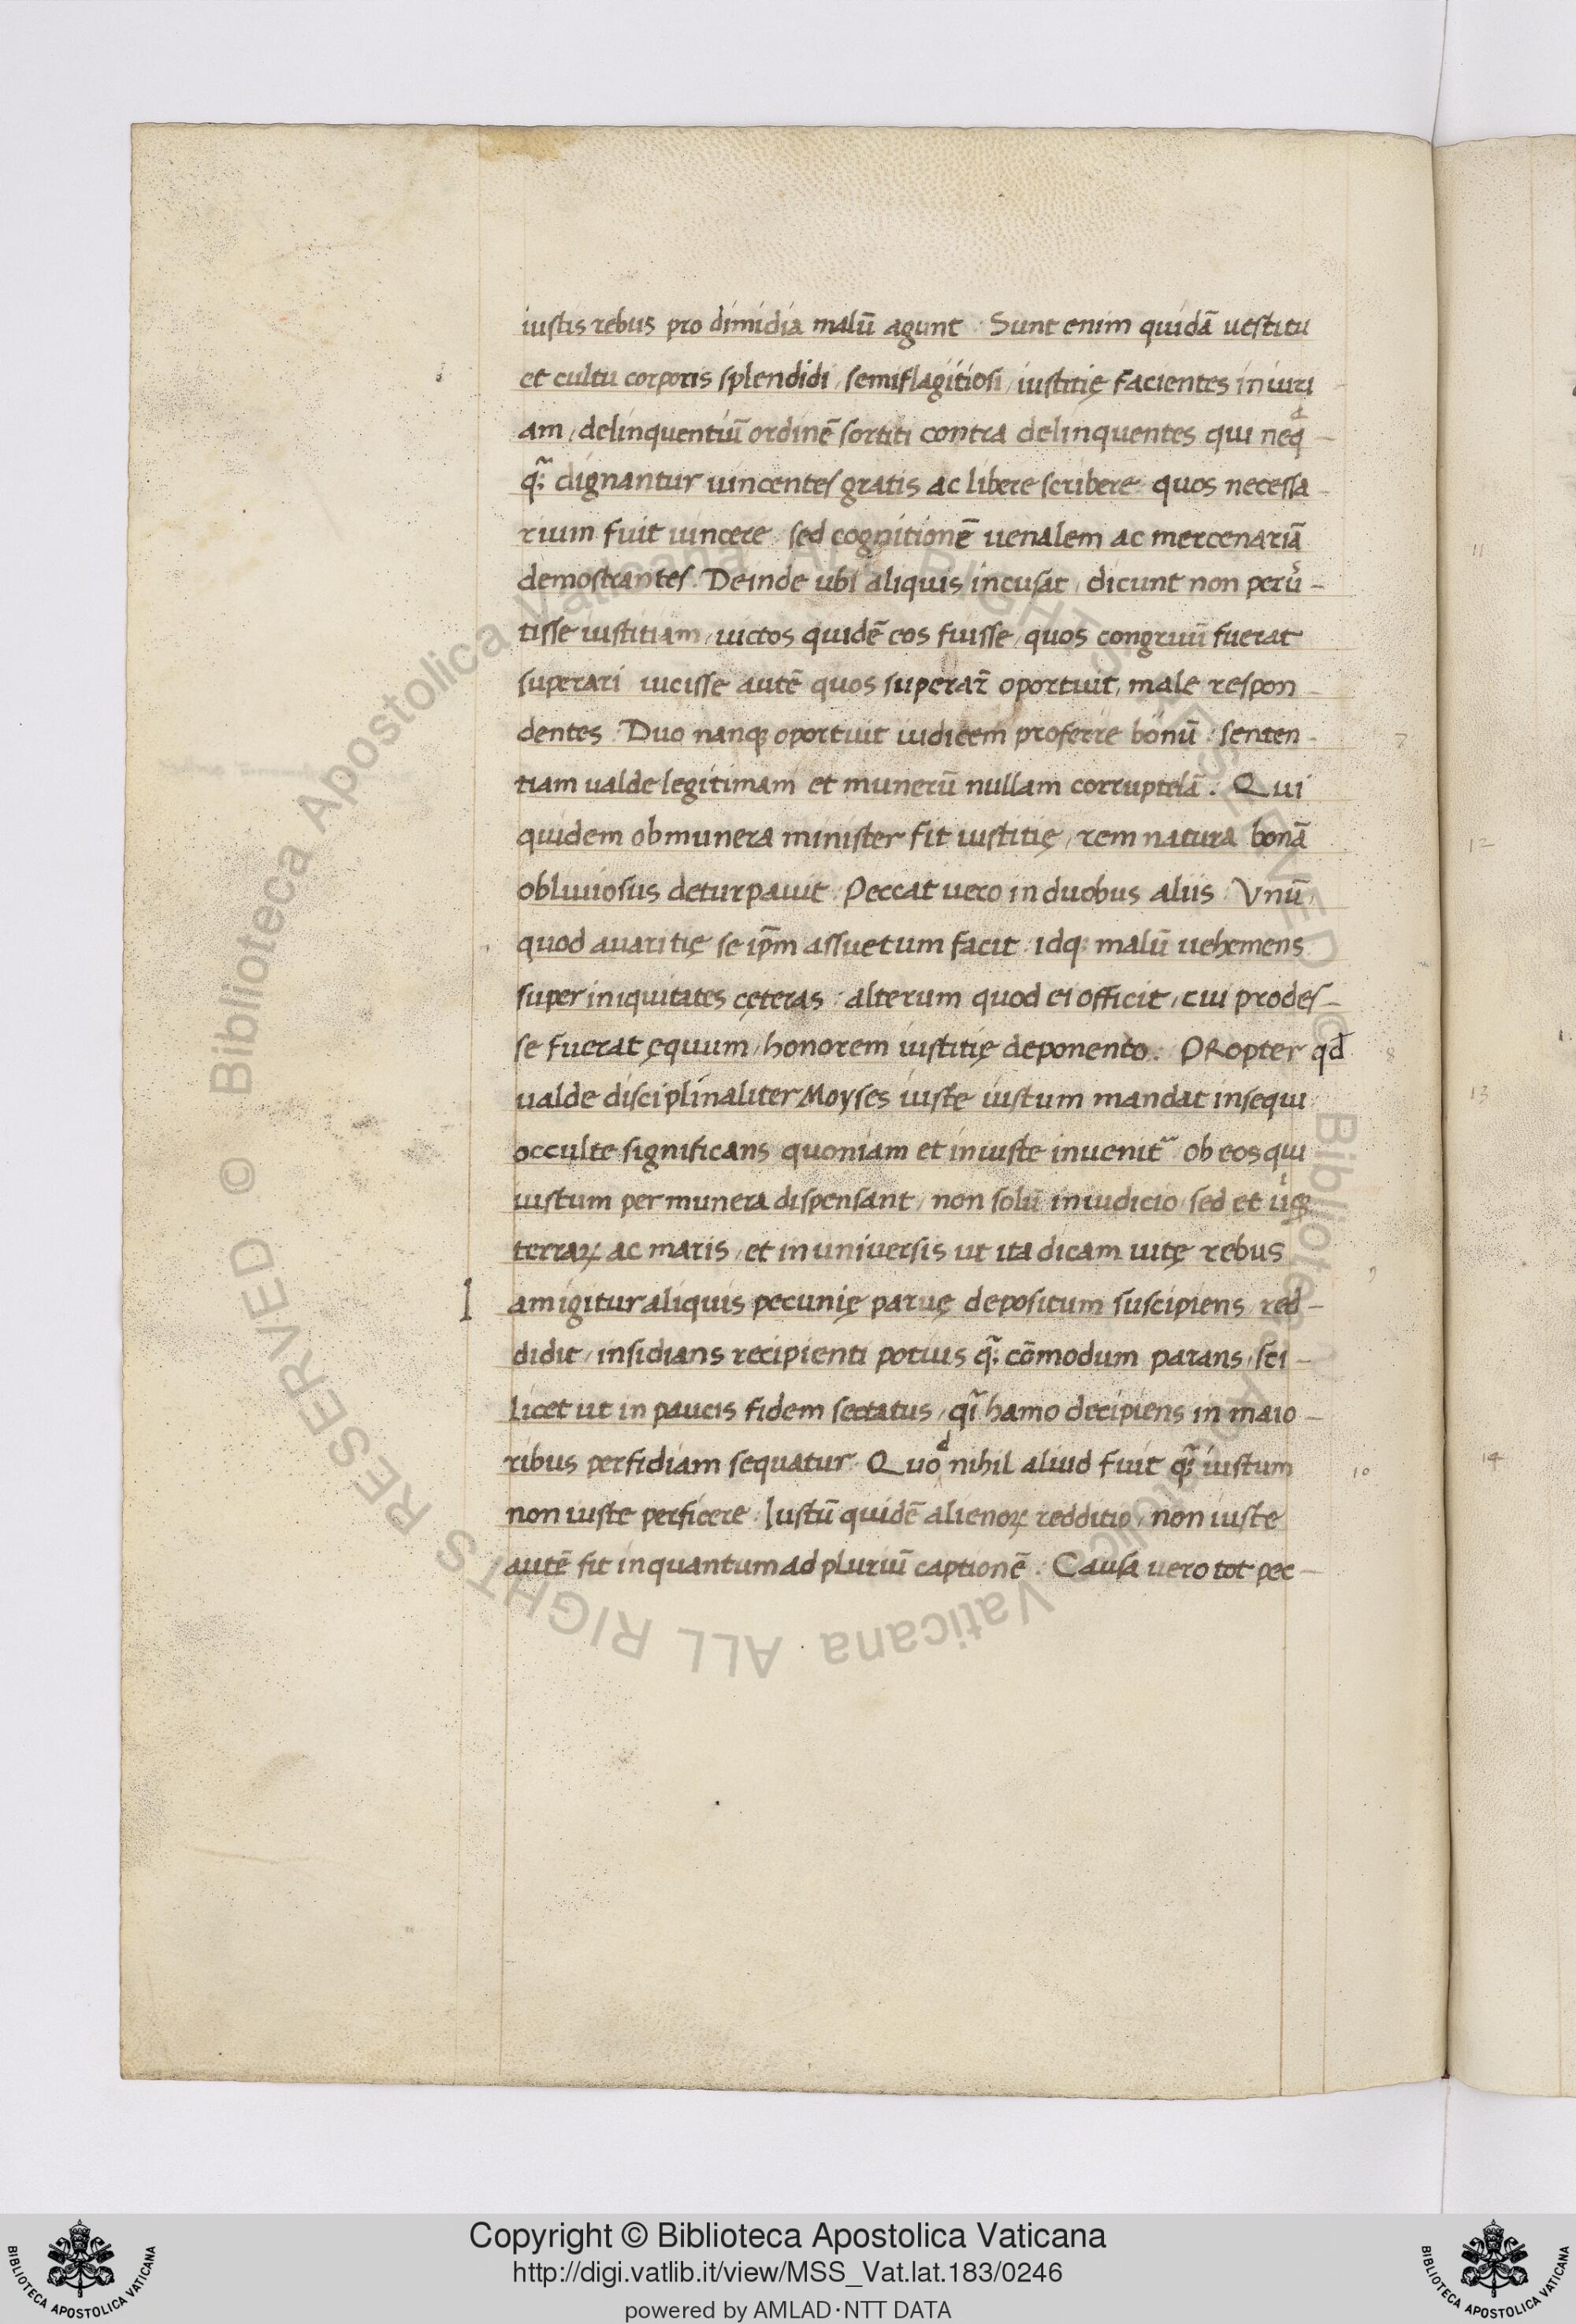 iustis rebus pro dimidia malū agunt : Sunt enim quidā uestitu
et cultu corporis splendidi / semiflagitiosi / iustitię facientes iniuri
am / delinquentiū ordinē sortiti contra delinquentes qui neqᵈ -
q̃; dignantur uincentes gratis ac libere scribere : quos necessa -
rium fuit uincere : sed cognitionē uenalem ac mercenariā
demostrantes . Deinde ubi aliquis incusat / dicunt non per -
tisse iustitiam / uictos quidē eos fuisse / quos congruū fuerat
superari uicisse autē quos superar̃ oportuit / male respon -
dentes : Duo nanq; oportuit iudicem proferre bonū : senten -
tiam ualde legitimam et munerū nullam corruptelā : Qui
quidem ob munera minister fit iustitię / rem natura bonā
obliuiosus deturpauit : Peccat uero in duobus aliis : Vnū
quod auaritię se ip̄m assuetum facit : idq; malū uehemens
super iniquitates cęteras : alterum quod ei officit / cui prodes -
se fuerat ęquum / honorem iustitię deponento : PRopter qđ
ualde disciplinaliter Moyses iuste iustum mandat insequi
occulte significans quoniam et iniuste inuenit᷉ ob eos qui
iustum per munera dispensant / non solū in iudicio sed et ų̇q;
terraꝝ ac maris / et in uniuersis ut ita dicam uitę rebus
I am igitur aliquis pecunię paruę depositum suscipiens / red -
didit / insidians recipienti potius q̃; cōmodum parans / sci -
licet ut in paucis fidem sectatus / qı̃ hamo decipiens in maio -
ribus perfidiam sequatur : Quoᵈ nihil aliud fuit q̃; iustum
non iuste perficere : Iustū quidē alienoꝝ redditio / non iuste
autē fit inquantum ad pluriū captionē : Causa uero tot pec -
7
8
9
10
11
12
13
14
Copyright © Biblioteca Apostolica Vaticana
http://digi.vatlib.it/view/MSS_Vat.lat.183/0246
powered by AMLAD·NTT DATA
BIBLIOTECA APOSTOLICA VATICANA
BIBLIOTECA APOSTOLICA VATICANA
© Biblioteca Apostolica Vaticana ALL RIGHTS RESERVED © Biblioteca Apostolica Vaticana ALL RIGHTS RESERVED